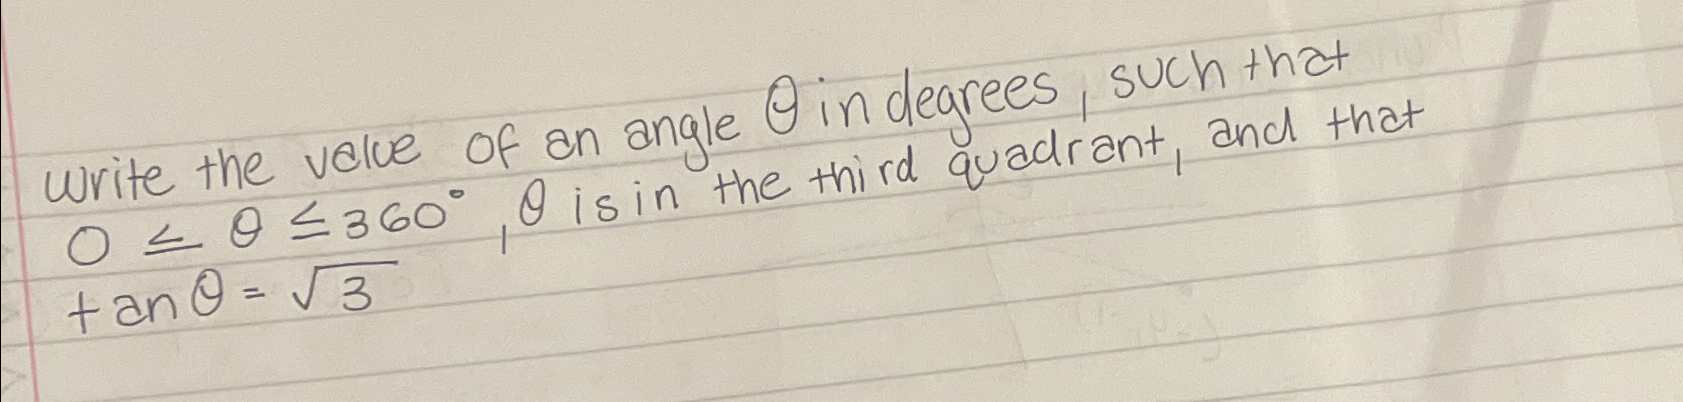 Write the value of an angle θ in degrees, such that
0 ≤ θ ≤ 360°, θ is in the third quadrant, and that
tan θ = √3